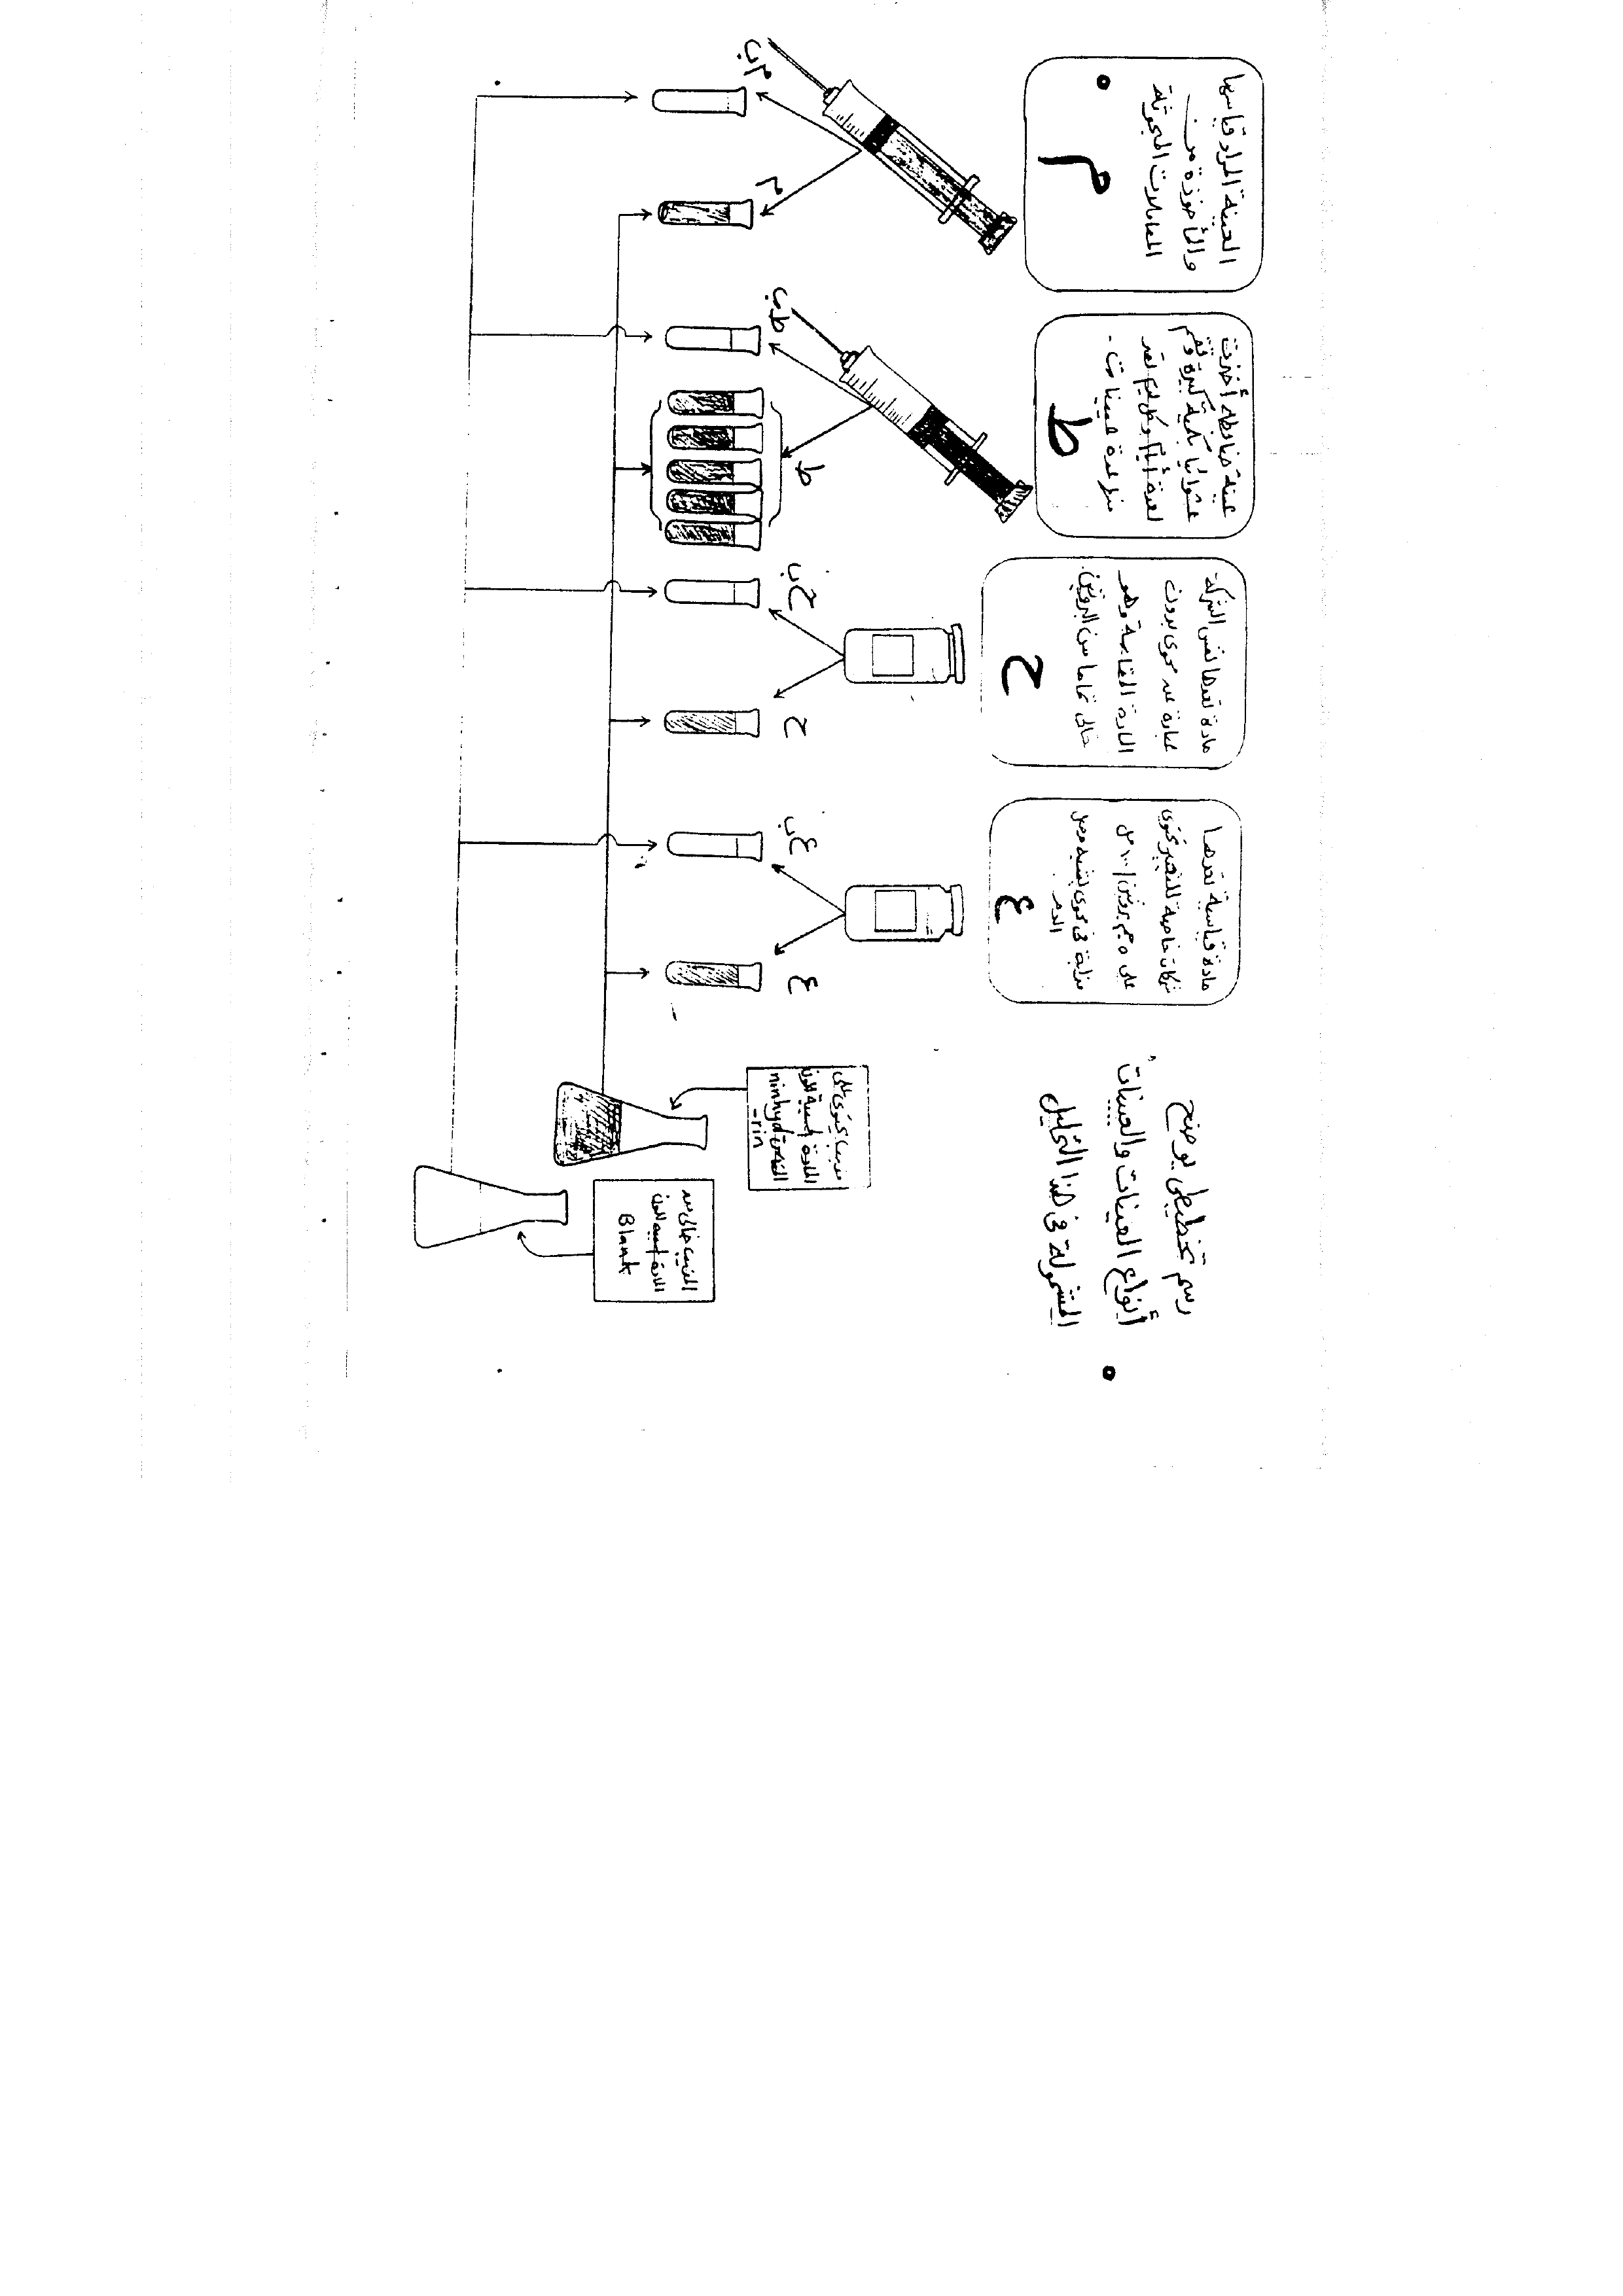 رسم تخطيطى يوضح
أنواع العينات والعينات
المشمولة فى هذا التحليل
العينة المراد قياسها
والمأخوذة من
المعاملات المبحوثة
م
عينة ضابطة أخذت
عشوائيا بكمية كبيرة
لعدة أيام وكل يوم
منه عدة عبينات -
ط
مادة تعدها نفس الشركة
عبارة عن محوى بدون
المادة القياسية وهو
خالى تماما من البروتين.
ح
مادة قياسية تعدها
شركات خاصة للتحضير تحتوى
على ٥ جم بروتين/١٠٠ مل
مذابة فى محوى يشبه مصل
الدم
ع
م ب
م
ط ب
ط
ح ب
ح
ع ب
ع
مذيب يحتوى على
المادة المسببة للون
ninhyd
-rin
المذيب خالى من
المادة المسببة للون
Blank